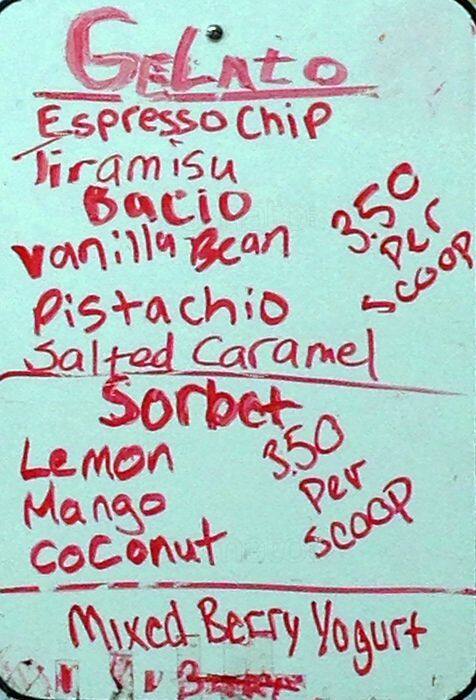 GeLato
Espresso Chip
Tiramisu
Bacio
Vanilla Bean
Pistachio
Salted Caramel
3.50
Per
scoop
Sorbet
Lemon
Mango
Coconut
3.50
Per
scoop
Mixed Berry Yogurt